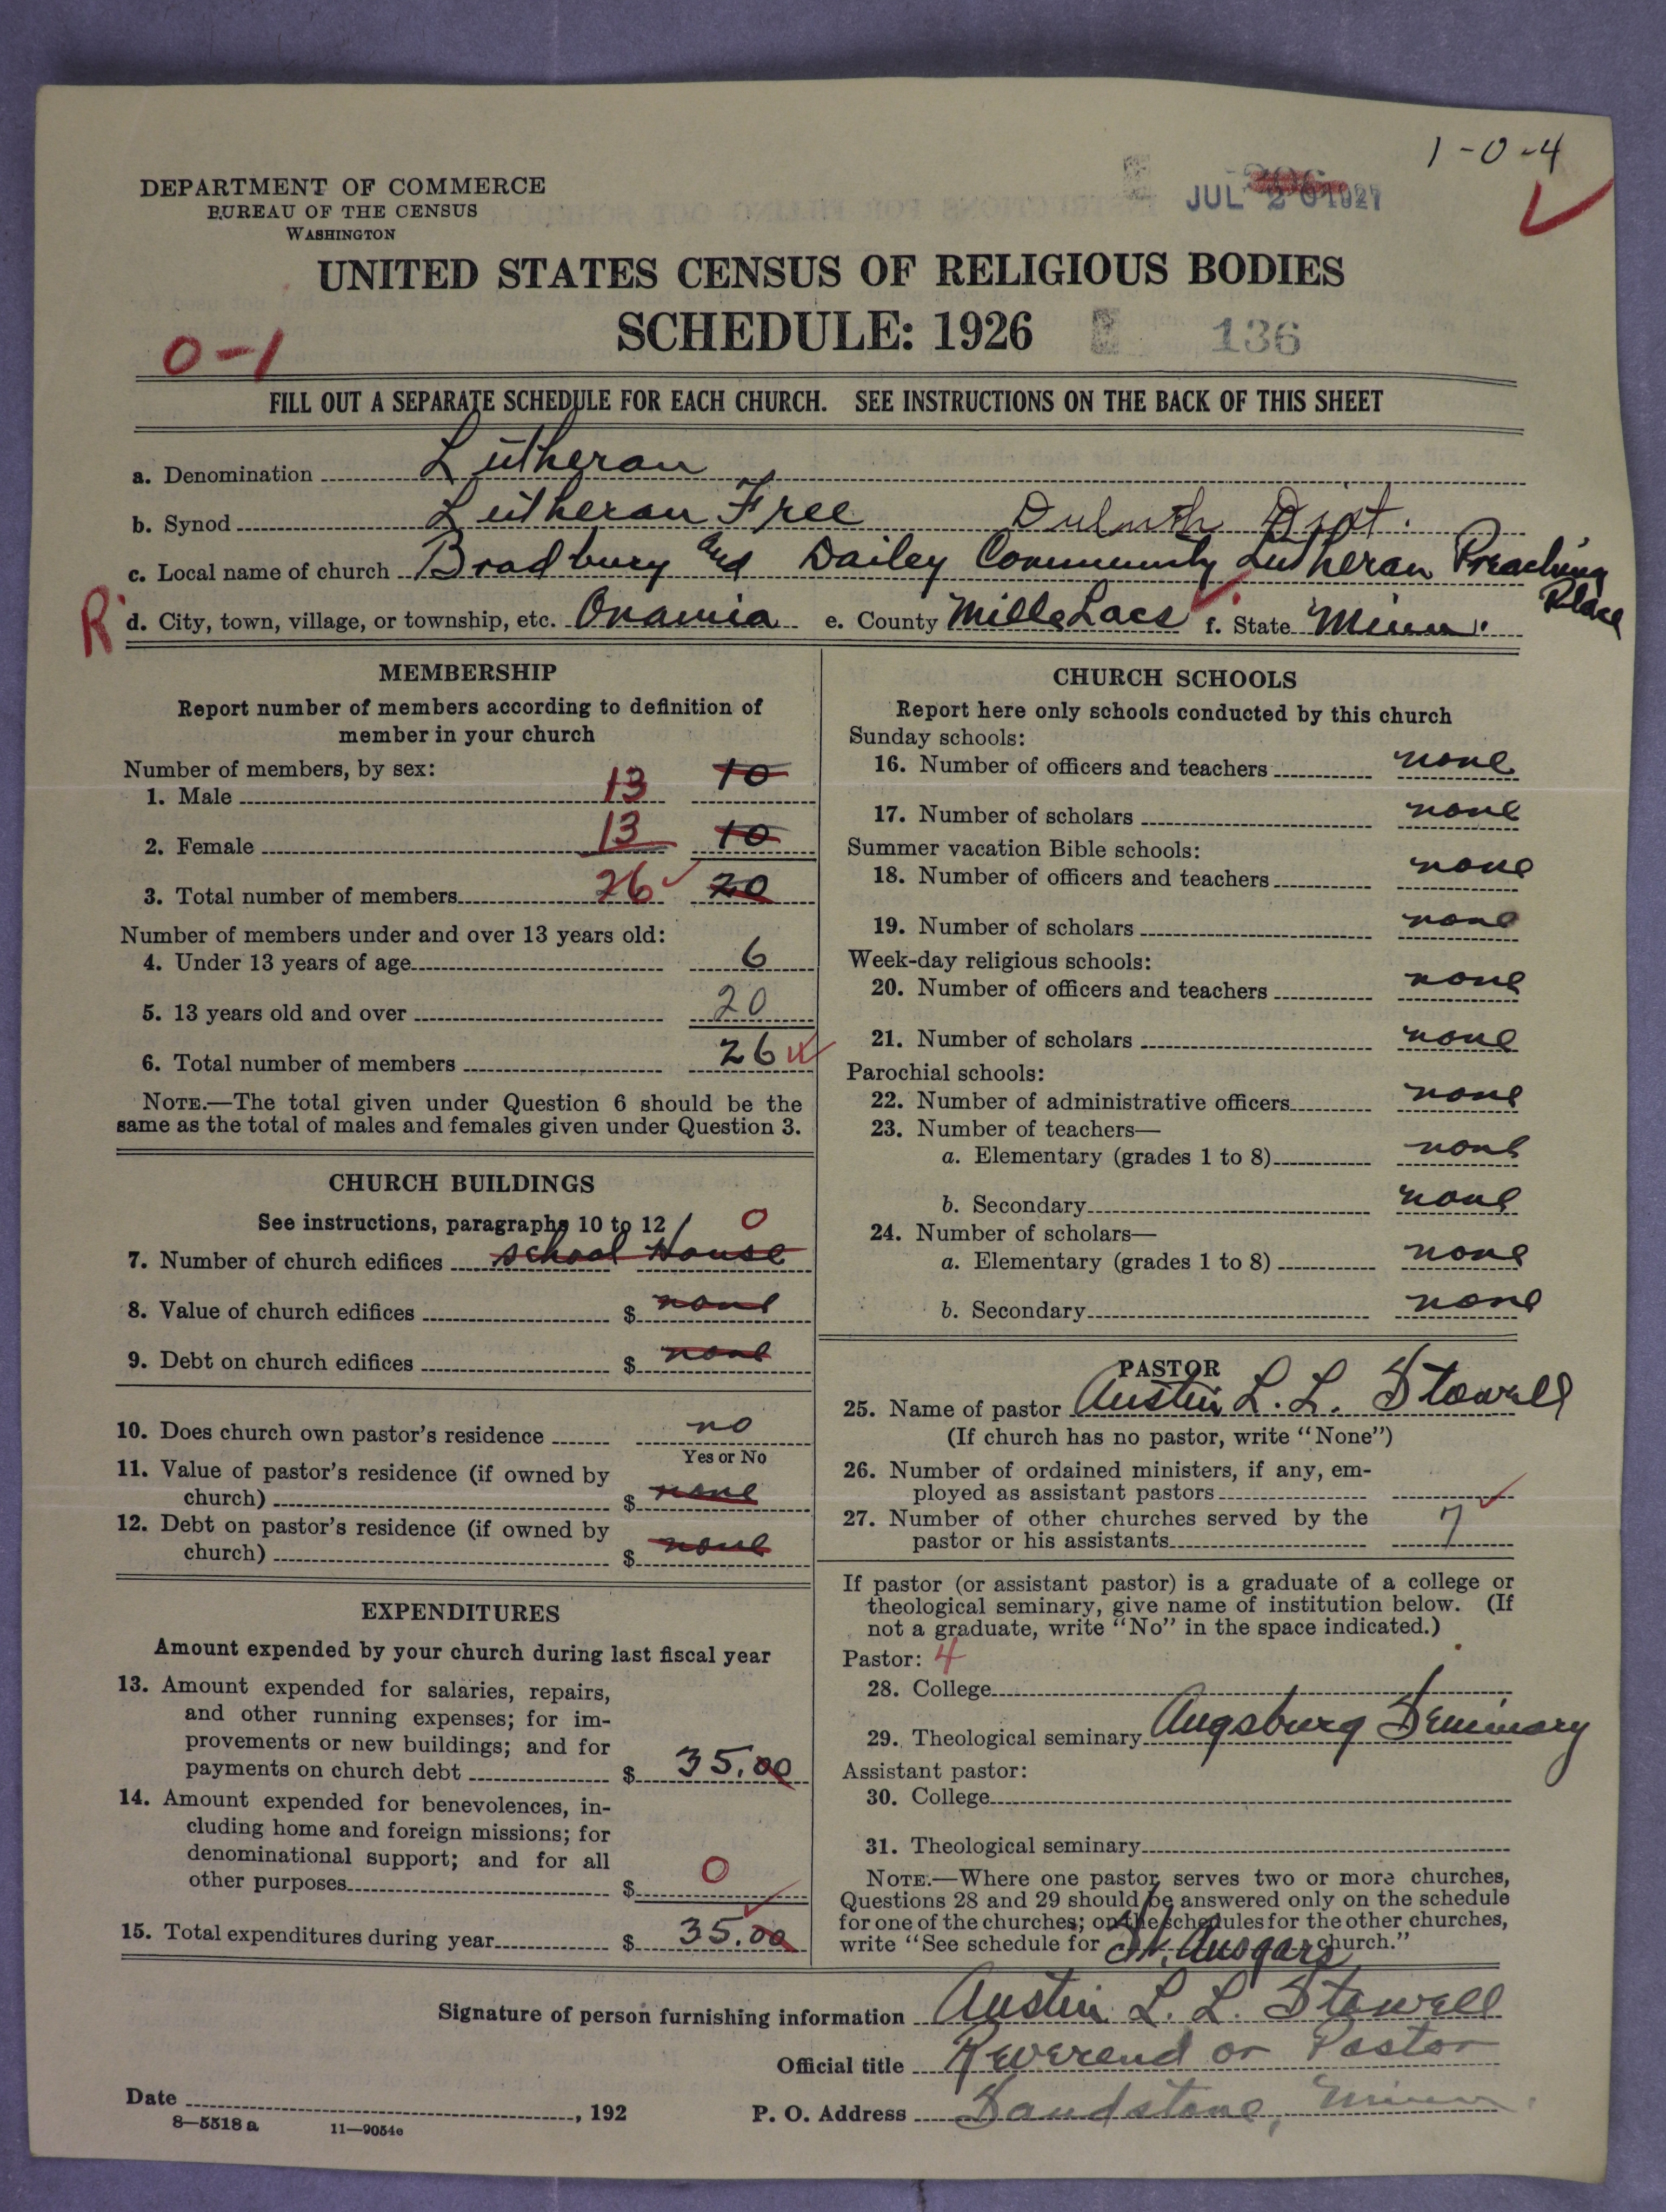 1-0-4
DEPARTMENT OF COMMERCE
BUREAU OF THE CENSUS
WASHINGTON
JUL 20 1927
UNITED STATES CENSUS OF RELIGIOUS BODIES
SCHEDULE: 1926
136
0-1
FILL OUT A SEPARATE SCHEDULE FOR EACH CHURCH. SEE INSTRUCTIONS ON THE BACK OF THIS SHEET
a. Denomination Lutheran
b. Synod Lutheran Free Duluth Dist.
c. Local name of church Bradbury and Dailey Community Lutheran Preaching Place
R d. City, town, village, or township, etc. Onamia e. County Mille Lacs f. State Minn.
MEMBERSHIP
Report number of members according to definition of
member in your church
Number of members, by sex:
1. Male 13 10
2. Female 13 10
3. Total number of members 26 20
Number of members under and over 13 years old:
4. Under 13 years of age 6
5. 13 years old and over 20
6. Total number of members 26
NOTE.—The total given under Question 6 should be the
same as the total of males and females given under Question 3.
CHURCH BUILDINGS
See instructions, paragraphs 10 to 12 / 0
7. Number of church edifices school House
8. Value of church edifices $ none
9. Debt on church edifices $ none
10. Does church own pastor's residence no
Yes or No
11. Value of pastor's residence (if owned by
church) $ none
12. Debt on pastor's residence (if owned by
church) $ none
EXPENDITURES
Amount expended by your church during last fiscal year
13. Amount expended for salaries, repairs,
and other running expenses; for im-
provements or new buildings; and for
payments on church debt $ 35.00
14. Amount expended for benevolences, in-
cluding home and foreign missions; for
denominational support; and for all
other purposes $ 0
15. Total expenditures during year $ 35.00
CHURCH SCHOOLS
Report here only schools conducted by this church
Sunday schools:
16. Number of officers and teachers none
17. Number of scholars none
Summer vacation Bible schools:
18. Number of officers and teachers none
19. Number of scholars none
Week-day religious schools:
20. Number of officers and teachers none
21. Number of scholars none
Parochial schools:
22. Number of administrative officers none
23. Number of teachers—
a. Elementary (grades 1 to 8) none
b. Secondary none
24. Number of scholars—
a. Elementary (grades 1 to 8) none
b. Secondary none
PASTOR
25. Name of pastor Austin L. L. Stowell
(If church has no pastor, write "None")
26. Number of ordained ministers, if any, em-
ployed as assistant pastors
27. Number of other churches served by the
pastor or his assistants 7
If pastor (or assistant pastor) is a graduate of a college or
theological seminary, give name of institution below. (If
not a graduate, write "No" in the space indicated.)
Pastor: 4
28. College
29. Theological seminary Augsburg Seminary
Assistant pastor:
30. College
31. Theological seminary
NOTE.—Where one pastor serves two or more churches,
Questions 28 and 29 should be answered only on the schedule
for one of the churches; on the schedules for the other churches,
write "See schedule for St. Ansgars church."
Signature of person furnishing information Austin L. L. Stowell
Official title Reverend or Pastor
Date , 192
P. O. Address Sandstone, Minn.
8—5518 a 11—9054e